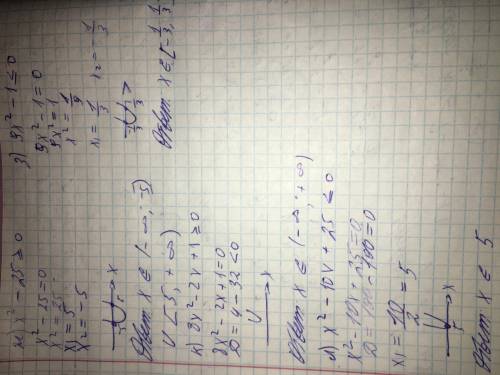 и) x² - 25 ≥ 0
x² - 25 = 0
x² = 25
x₁ = 5
x₂ = -5
-5 5 x
Ответ: x ∈ (-∞; -5]
∪ [5; +∞)
к) 8x² - 2x + 1 ≥ 0
8x² - 2x + 1 = 0
D = 4 - 32 < 0
x
Ответ: x ∈ (-∞; +∞)
л) x² - 10x + 25 ≤ 0
x² - 10x + 25 = 0
D = 100 - 100 = 0
x₁ = 10/2 = 5
5 x
Ответ: x ∈ 5
з) 9x² - 1 ≤ 0
9x² - 1 = 0
9x² = 1
x² = 1/9
x₁ = 1/3 x₂ = -1/3
-1/3 1/3
Ответ: x ∈ [-3; 1/3